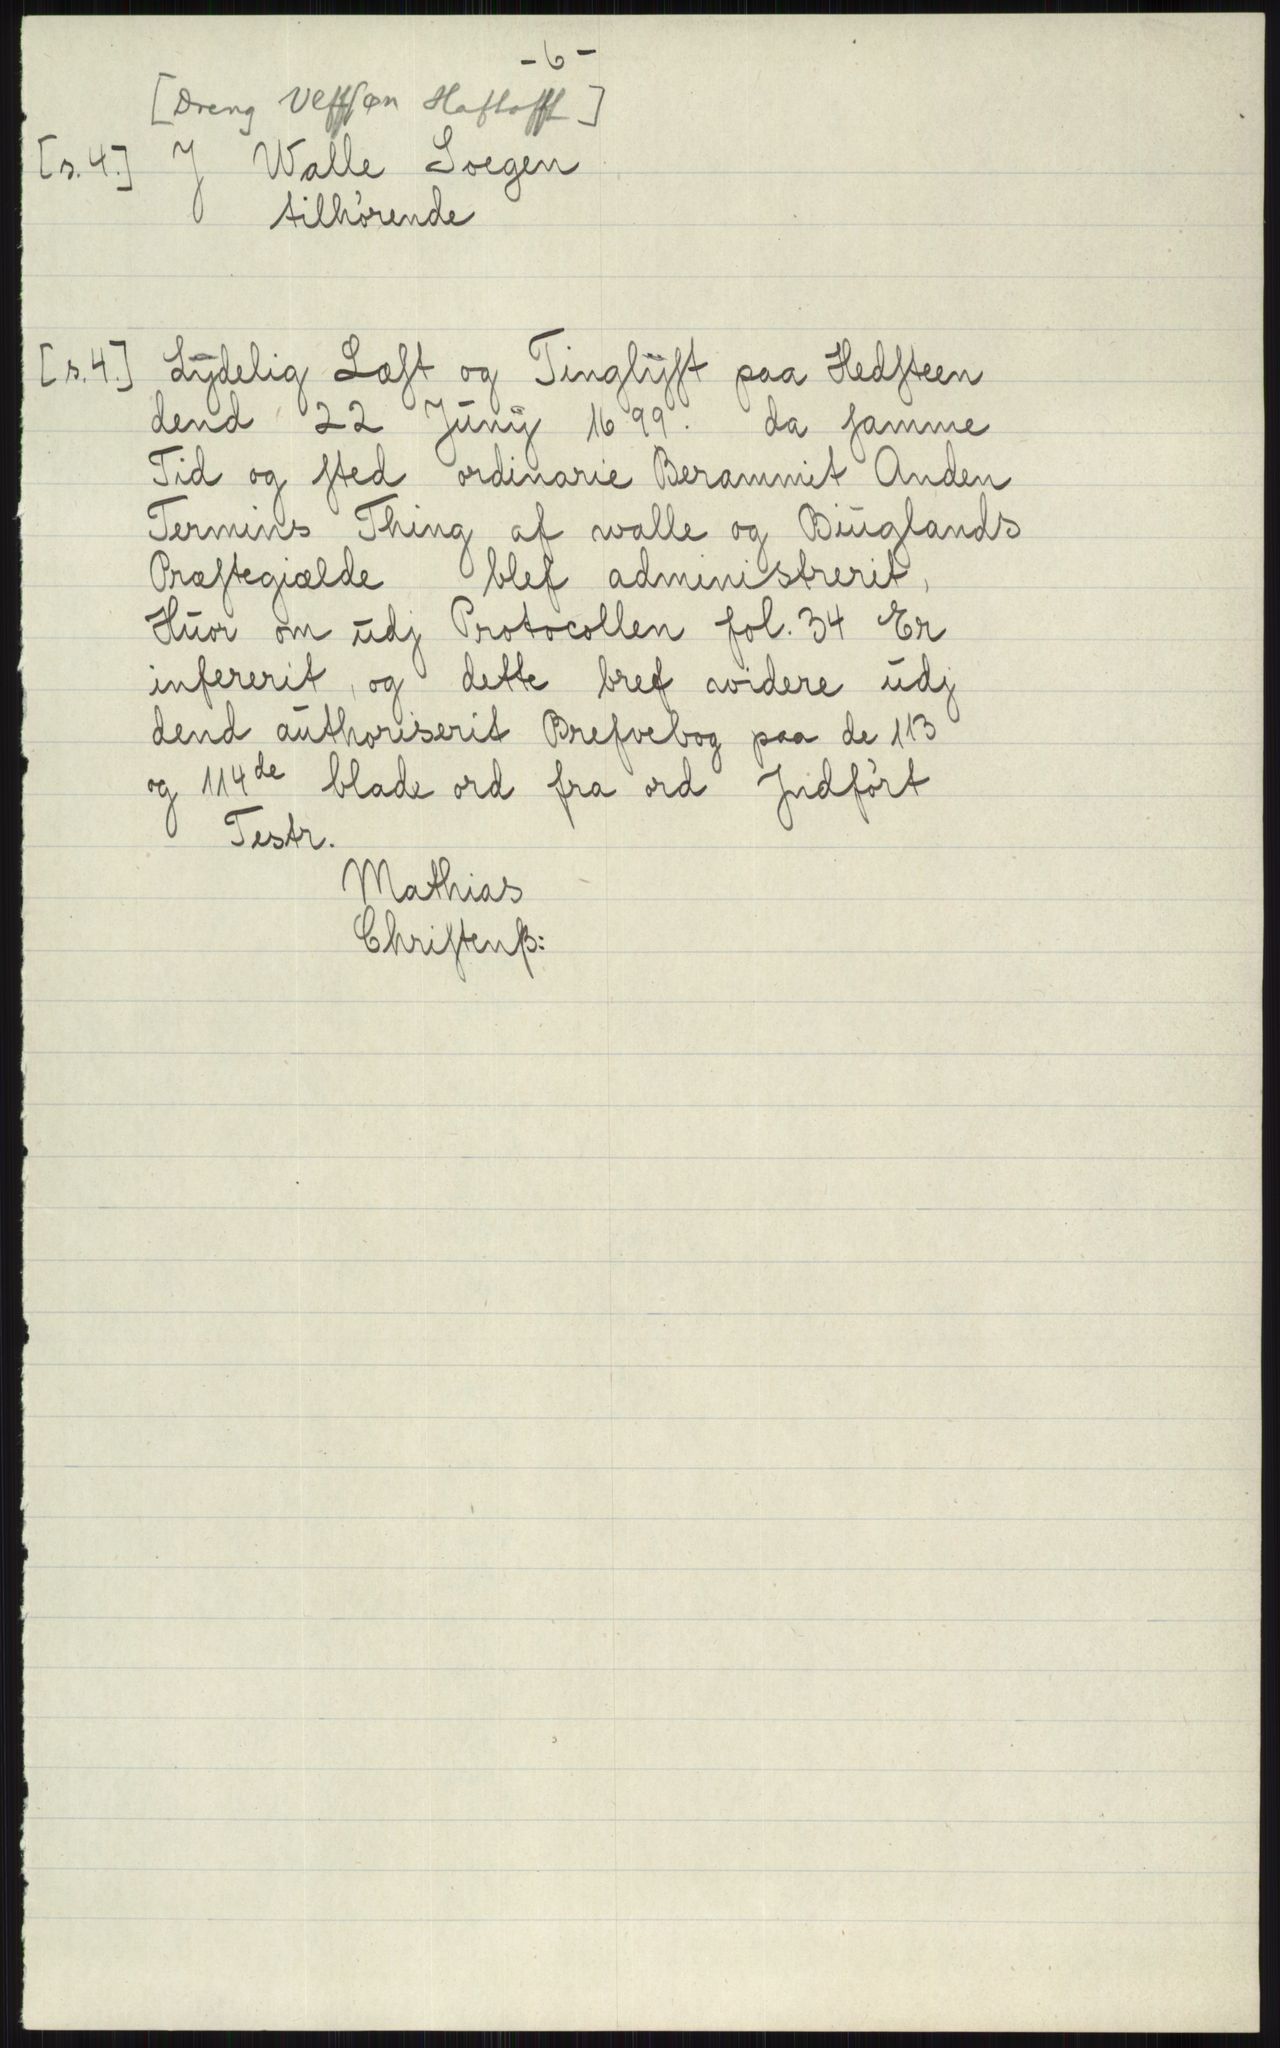 - 6 -
[Dreng Veffſøn Haftofft]
[s.4.] J Walle Soegen
tilhørende
[s.4.] Lÿdelig Læſt og Tinglÿſt paa Hedſteen
dend 22 Junÿ 1699. da ſamme
Tid og ſted ordinarie Berammit Anden
Termins Thing af walle og Biuglands
Præſtegiælde blef administrerit,
Huor om udj Protocollen fol. 34 Er
inſererit, og dette bref widere udj
dend authoriserit Brefvebog paa de 113
og 114de blade ord fra ord Jndført
Testr.
Mathias
Chriſtenß: